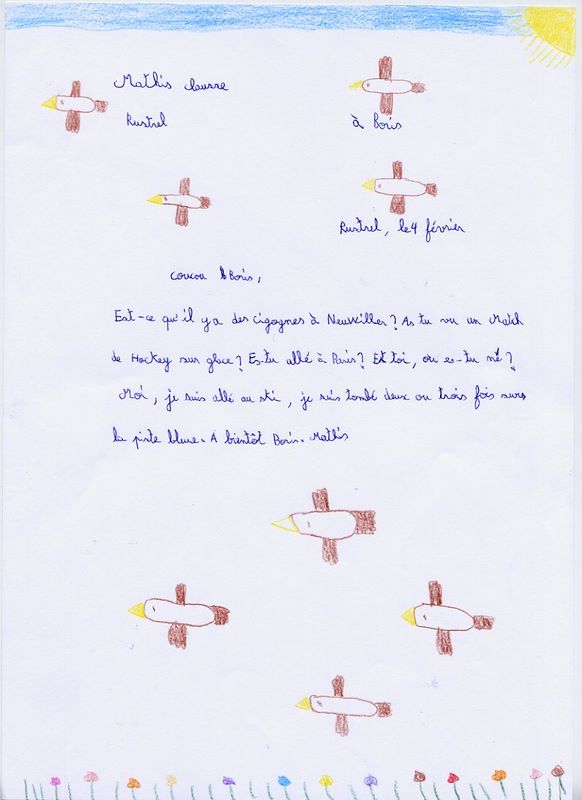 Mathis
Rustrel
à Boris
Rustrel, le 4 février
coucou Boris,
Est-ce qu'il y a des cigognes à Neuwiller? As tu vu un Match
de Hockey sur glace? Es-tu allé à Paris? Et toi, ou es-tu né?
Moi, je suis allé au ski, je suis tombé deux ou trois fois sur
la piste bleue. A bientôt Boris. Mathis